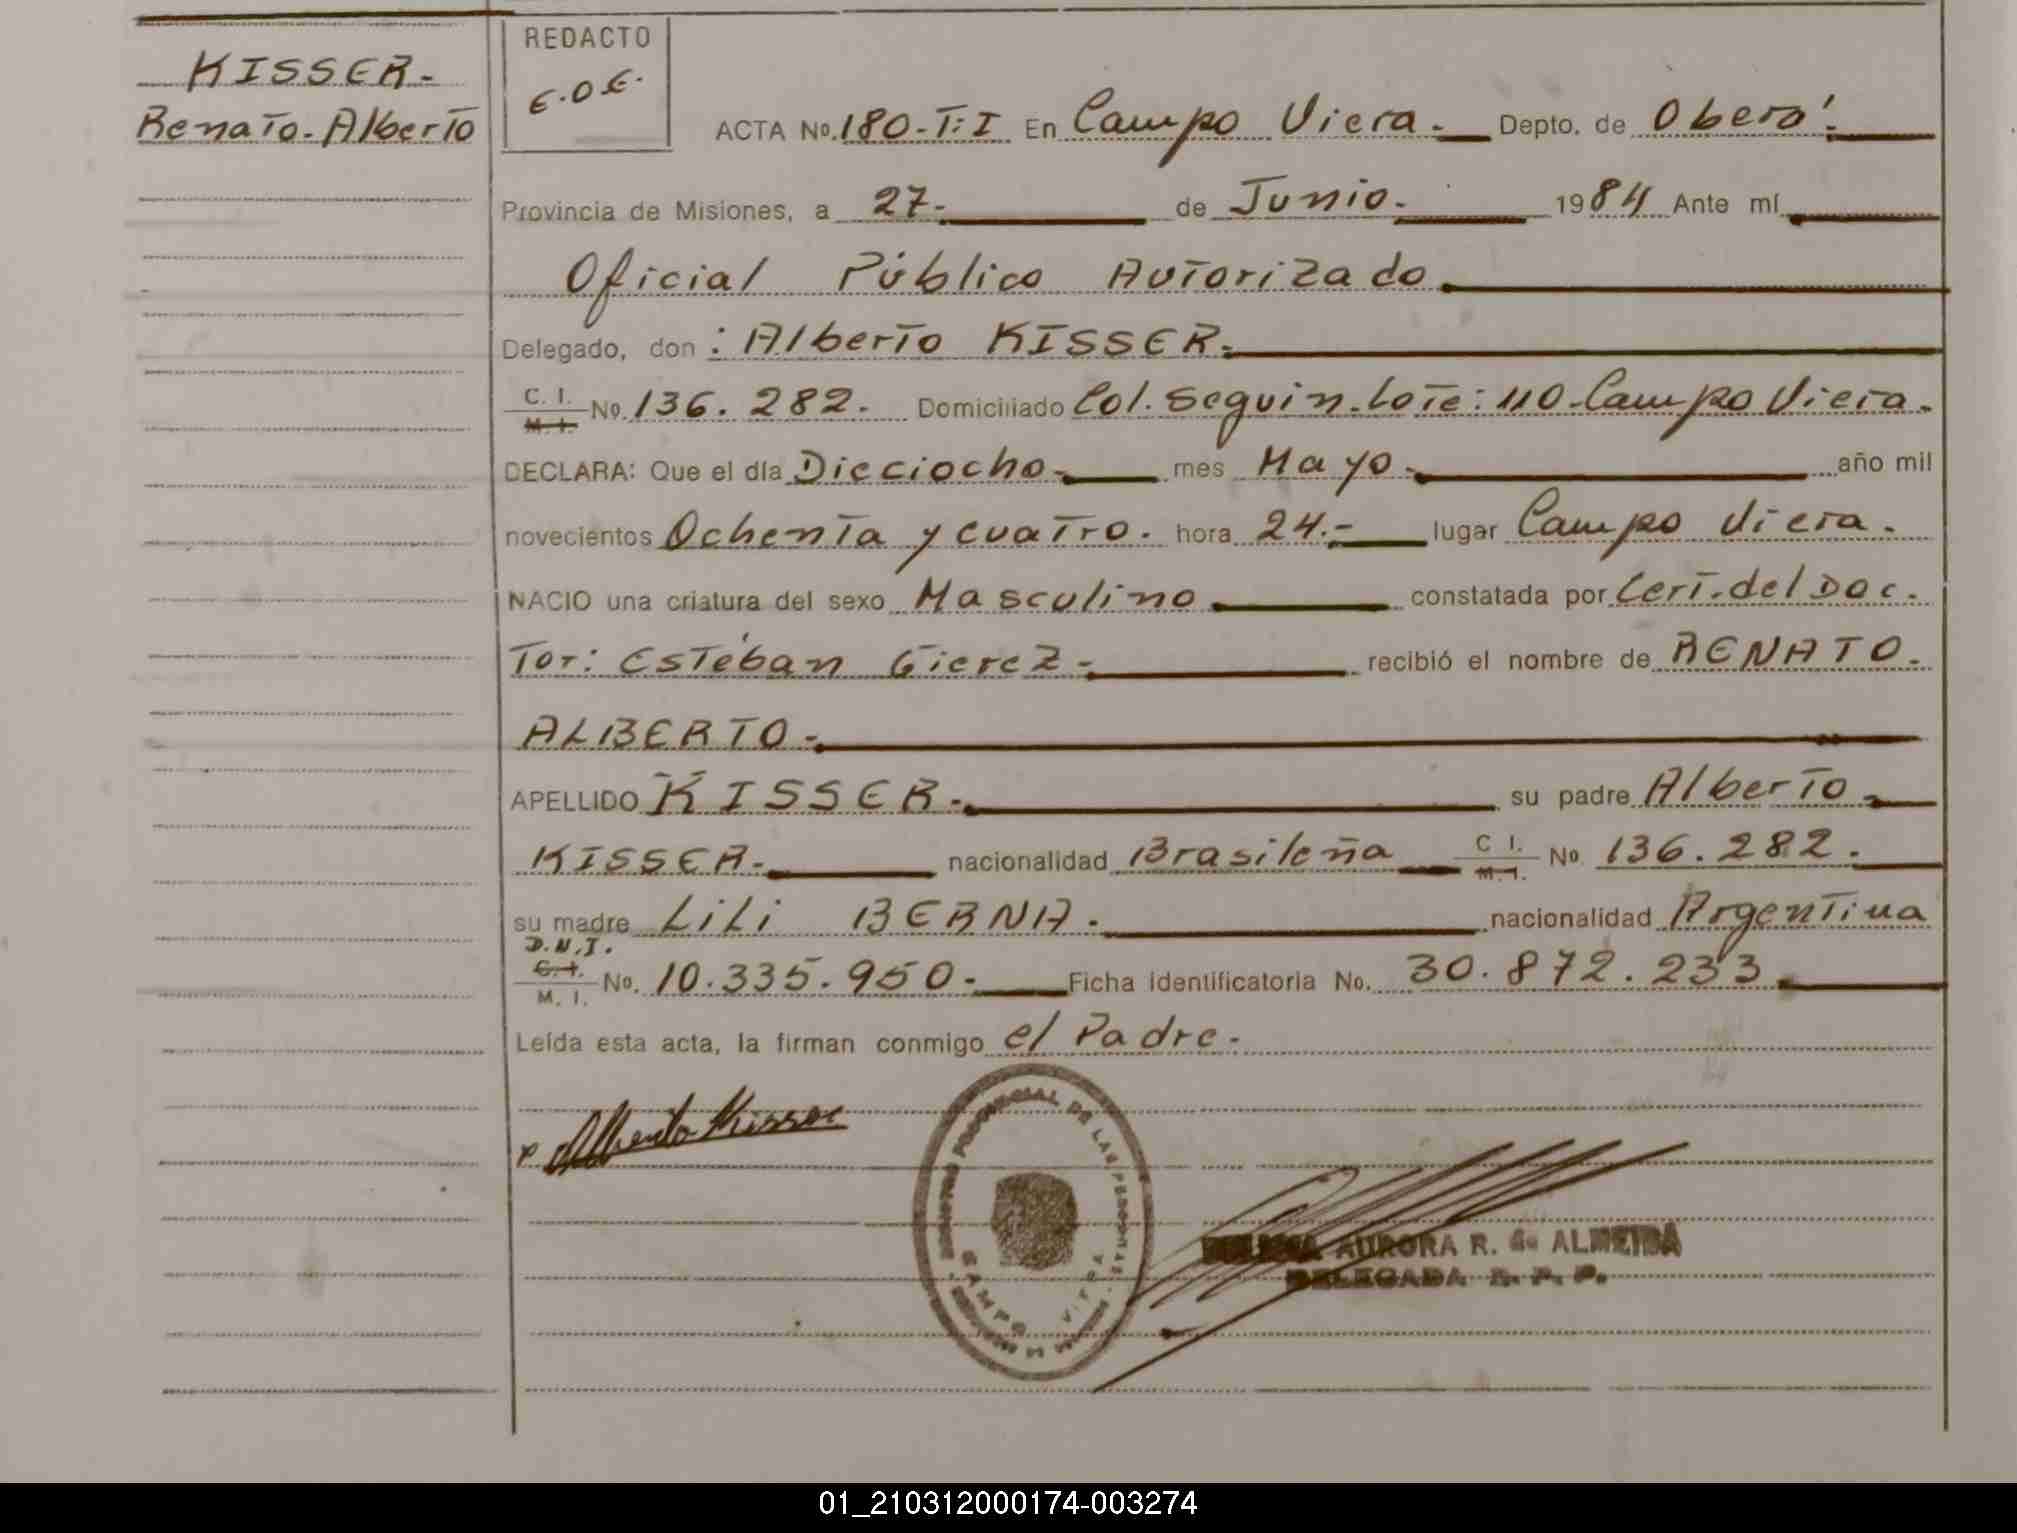 KISSER.
Renato. Alberto
REDACTO
E.O.E.
ACTA No. 180-T:I En Campo Viera. Depto. de Oberá.
Provincia de Misiones, a 27. de Junio. 1984 Ante mí
Oficial Público Autorizado
Delegado, don: Alberto KISSER.
C. I. M. I. No. 136.282. Domiciliado Col. Seguin. Lote: 110-Campo Viera.
DECLARA: Que el día Dieciocho. mes Mayo. año mil
novecientos Ochenta y cuatro. hora 24.- lugar Campo Viera.
NACIO una criatura del sexo Masculino constatada por Cert. del Doc.
Tor: Estéban Gierez. recibió el nombre de RENATO.
ALBERTO.
APELLIDO KISSER. su padre Alberto
KISSER. nacionalidad Brasileña C I. M. I. No. 136.282.
su madre LiLi BERNA. nacionalidad Argentina
D.N.I.
C. I. M. I. No. 10.335.950. Ficha Identificatoria No. 30.872.233
Leída esta acta, la firman conmigo el Padre.
x Alberto Kisser
PROVINCIAL DE LAS PERSONAS
CAMPO VIERA
AURORA R. de ALMEIDA
DELEGADA R. P. P.
01_210312000174-003274